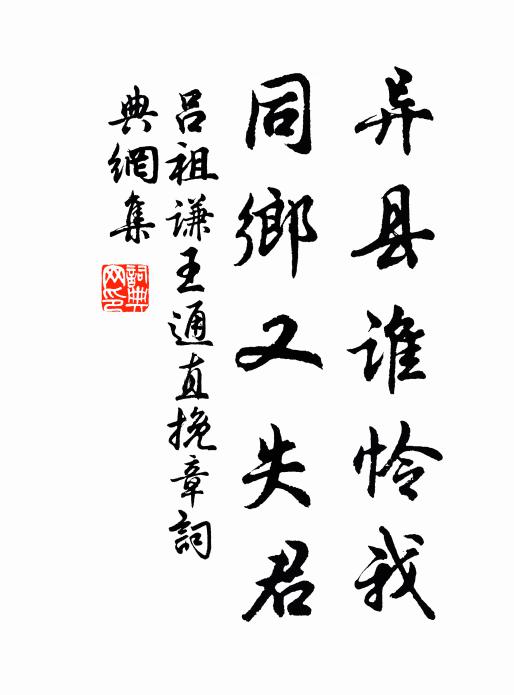 异县谁怜我
同鄉又失君
吕祖谦王通直挽章詞
典網集
詞典网印